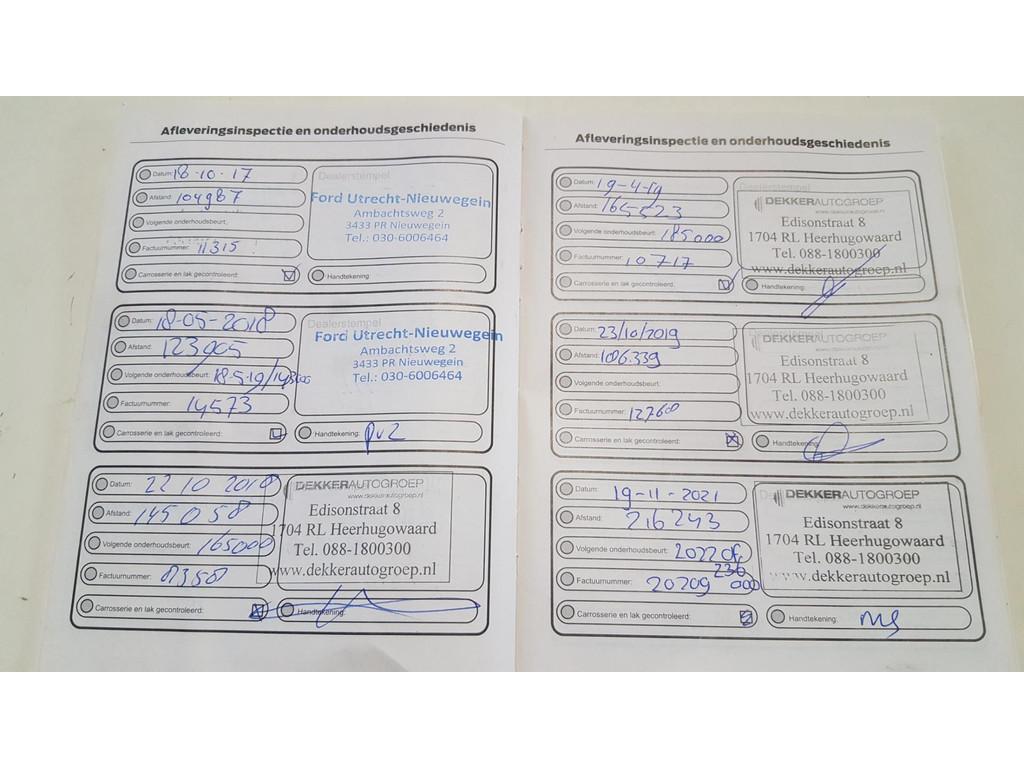 Afleveringsinspectie en onderhoudsgeschiedenis
Datum: 18-10-17
Dealerstempel
Afstand: 104987
Ford Utrecht-Nieuwegein
Ambachtsweg 2
3433 PR Nieuwegein
Tel.: 030-6006464
Volgende onderhoudsbeurt:
Factuurnummer: 11315
Carrosserie en lak gecontroleerd:
Handtekening
Datum: 18-05-2018
Dealerstempel
Afstand: 123905
Ford Utrecht-Nieuwegein
Ambachtsweg 2
3433 PR Nieuwegein
Tel.: 030-6006464
Volgende onderhoudsbeurt: 18-5-19/
Factuurnummer: 14573
Carrosserie en lak gecontroleerd:
Handtekening:
Datum: 22 10 2018
DEKKERAUTOGROEP
www.dekkerautogroep.nl
Afstand: 145058
Edisonstraat 8
1704 RL Heerhugowaard
Tel. 088-1800300
www.dekkerautogroep.nl
Volgende onderhoudsbeurt: 165000
Factuurnummer: 8358
Carrosserie en lak gecontroleerd:
Handtekening:
Afleveringsinspectie en onderhoudsgeschiedenis
Datum: 19-4-19
Afstand: 165523
DEKKERAUTOGROEP
www.dekkerautogroep.nl
Edisonstraat 8
1704 RL Heerhugowaard
Tel. 088-1800300
www.dekkerautogroep.nl
Volgende onderhoudsbeurt: 185000
Factuurnummer: 10717
Carrosserie en lak gecontroleerd:
Handtekening:
Datum: 23/10/2019
Afstand: 186339
DEKKERAUTOGROEP
Edisonstraat 8
1704 RL Heerhugowaard
Tel. 088-1800300
www.dekkerautogroep.nl
Volgende onderhoudsbeurt:
Factuurnummer: 12760
Carrosserie en lak gecontroleerd:
Handtekening
Datum: 19-11-2021
DEKKERAUTOGROEP
www.dekkerautogroep.nl
Afstand: 216243
Edisonstraat 8
1704 RL Heerhugowaard
Tel. 088-1800300
www.dekkerautogroep.nl
Volgende onderhoudsbeurt: 2022 of
236 000
Factuurnummer: 20209
Carrosserie en lak gecontroleerd:
Handtekening: